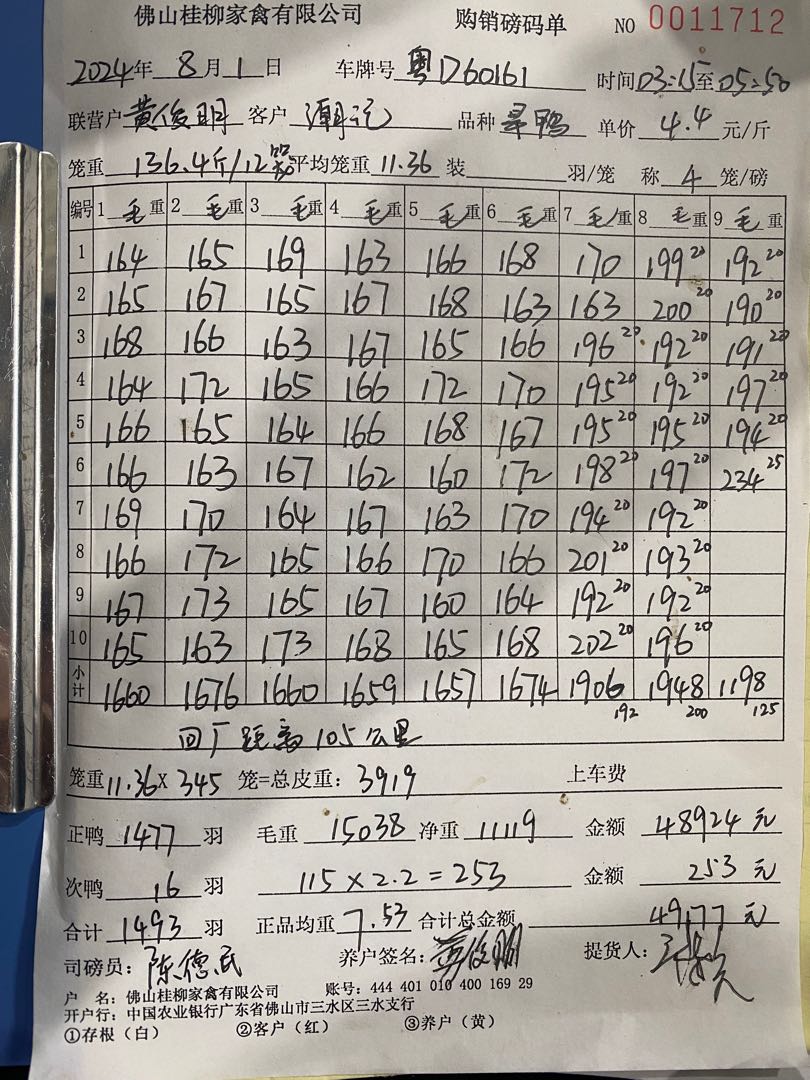 佛山桂柳家禽有限公司 购销磅码单 NO 0011712
2024年 8月 1日 车牌号 粤D60161 时间 03:15至05:50
联营户 黄俊明 客户 潮记 品种 寻鸭 单价 4.4 元/斤
笼重 136.4斤/12 平均笼重 11.36 装 羽/笼 称 4 笼/磅
编号 1 毛重 2 毛重 3 毛重 4 毛重 5 毛重 6 毛重 7 毛重 8 毛重 9 毛重
1 164 165 169 163 166 168 170 199 20 192 20
2 165 167 165 167 168 163 163 200 20 190 20
3 168 166 163 167 165 166 196 20 192 20 191 20
4 164 172 165 166 172 170 195 20 192 20 197 20
5 166 165 164 166 168 167 195 20 195 20 194 20
6 166 163 167 162 160 172 198 20 197 20 234 25
7 169 170 164 167 163 170 194 20 192 20
8 166 172 165 166 170 166 201 20 193 20
9 167 173 165 167 160 164 192 20 192 20
10 165 163 173 168 165 168 202 20 196 20
小计 1660 1676 1660 1659 1657 1674 1906 1948 1198
192 200 125
回厂距离105公里
笼重 11.36 × 345 笼=总皮重: 3919 上车费
正鸭 1477 羽 毛重 15038 净重 11119 金额 48924 元
次鸭 16 羽 115 × 2.2 = 253 金额 253 元
合计 1493 羽 正品均重 7.53 合计总金额 49177 元
司磅员: 陈德民 养户签名: 黄俊明 提货人:
户 名: 佛山桂柳家禽有限公司 账号: 444 401 010 400 169 29
开户行: 中国农业银行广东省佛山市三水区三水支行
①存根(白) ②客户(红) ③养户(黄)